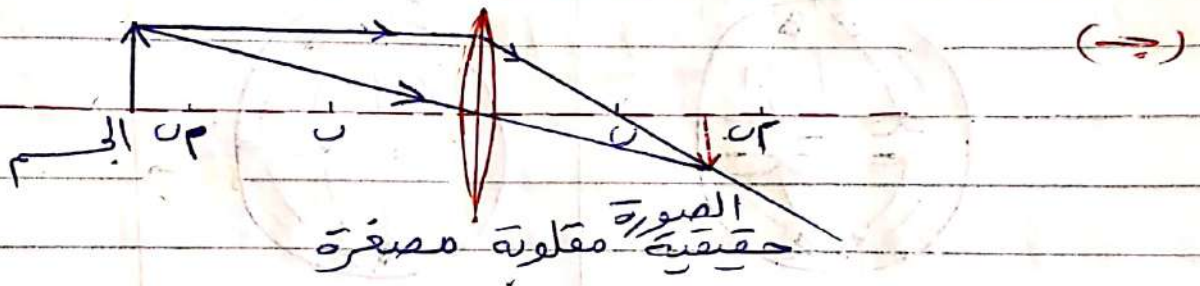 (جـ)
الجسم م ن ن ن م ن
الصورة
حقيقية مقلوبة مصغرة